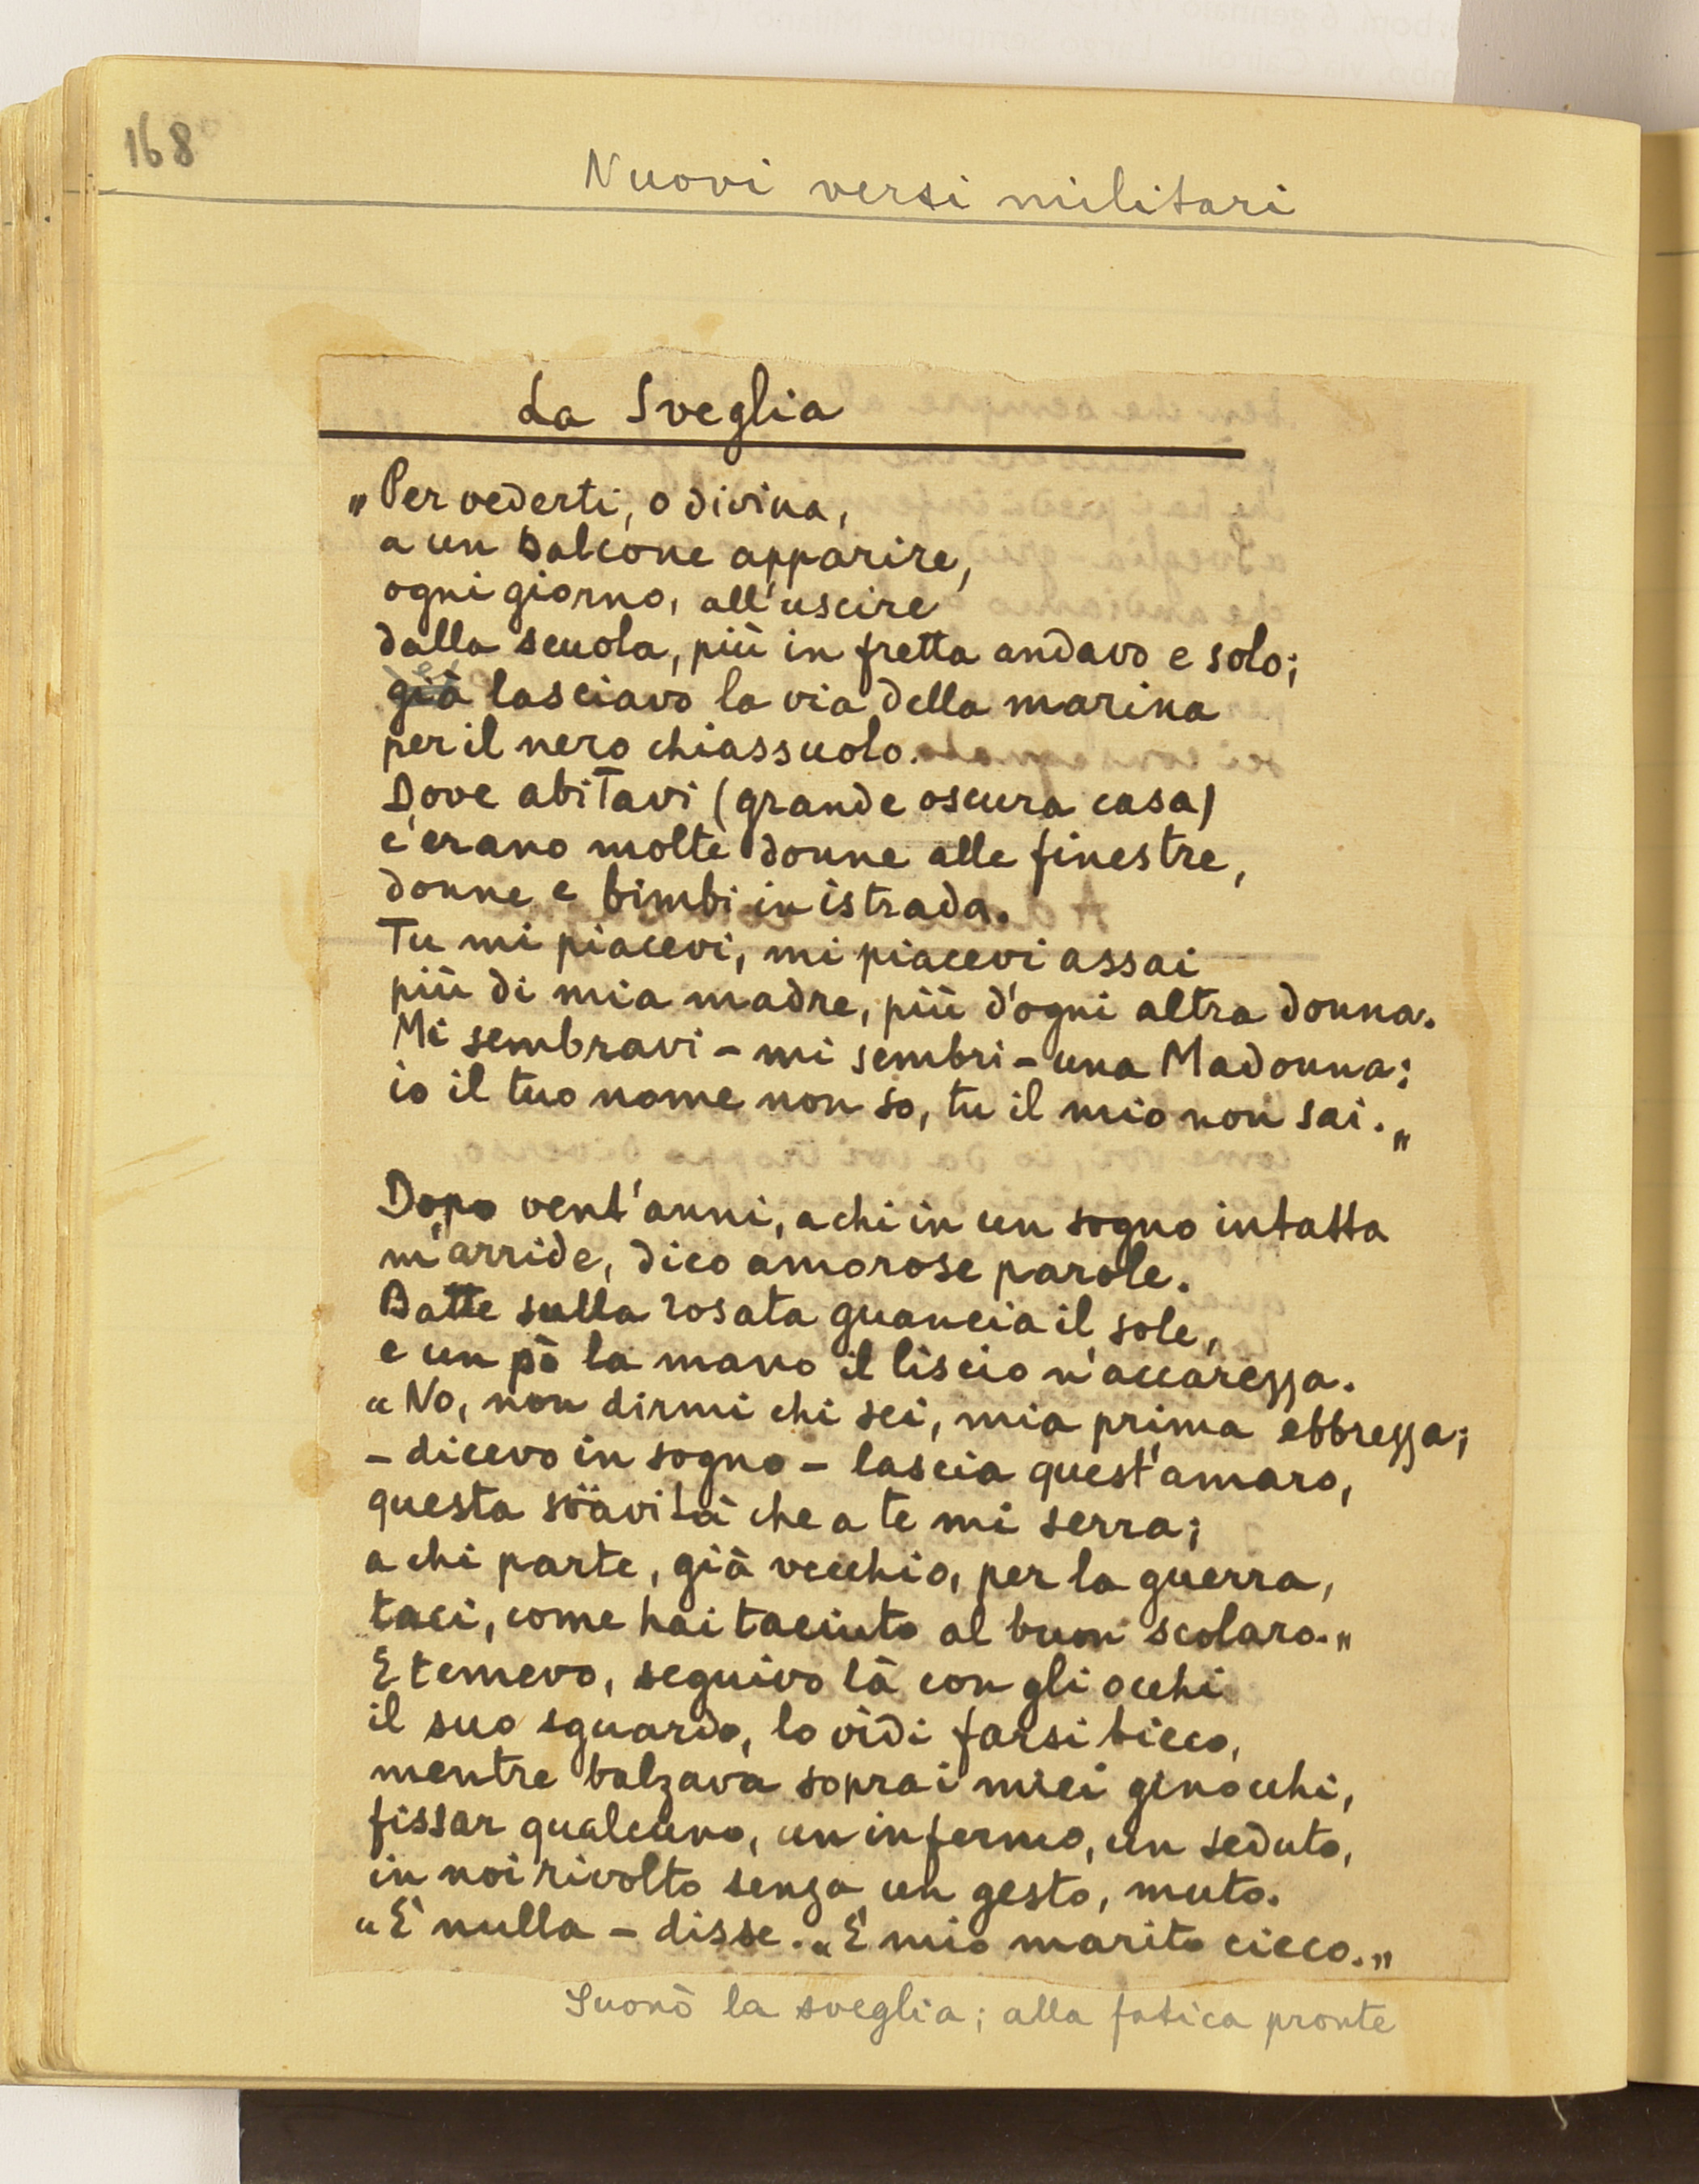 168
Nuovi versi militari
La Sveglia
„Per vederti, o divina,
a un balcone apparire,
ogni giorno, all'uscire
dalla scuola, più in fretta andavo e solo;
già lasciavo la via della marina
per il nero chiassuolo.
Dove abitavi (grande oscura casa)
c'erano molte donne alle finestre,
donne e bimbi in istrada.
Tu mi piacevi, mi piacevi assai
più di mia madre, più d'ogni altra donna.
Mi sembravi - mi sembri - una Madonna;
io il tuo nome non so, tu il mio non sai.„
Dopo vent'anni, a chi in un sogno intatta
m'arride, dico amorose parole.
Batte sulla rosata guancia il sole,
e un pò la mano il liscio n'accarezza.
“No, non dirmi chi sei, mia prima ebbrezza;
- dicevo in sogno - lascia quest'amaro,
questa söavità che a te mi serra;
a chi parte, già vecchio, per la guerra,
taci, come hai taciuto al buon scolaro.„
E temevo, seguivo là con gli occhi
il suo sguardo, lo vidi farsi bieco,
mentre balzava sopra i miei ginocchi,
fissar qualcuno, un infermo, un seduto,
in noi rivolto senza un gesto, muto.
“E' nulla - disse. “E' mio marito cieco.„
Suonò la sveglia; alla fatica pronte